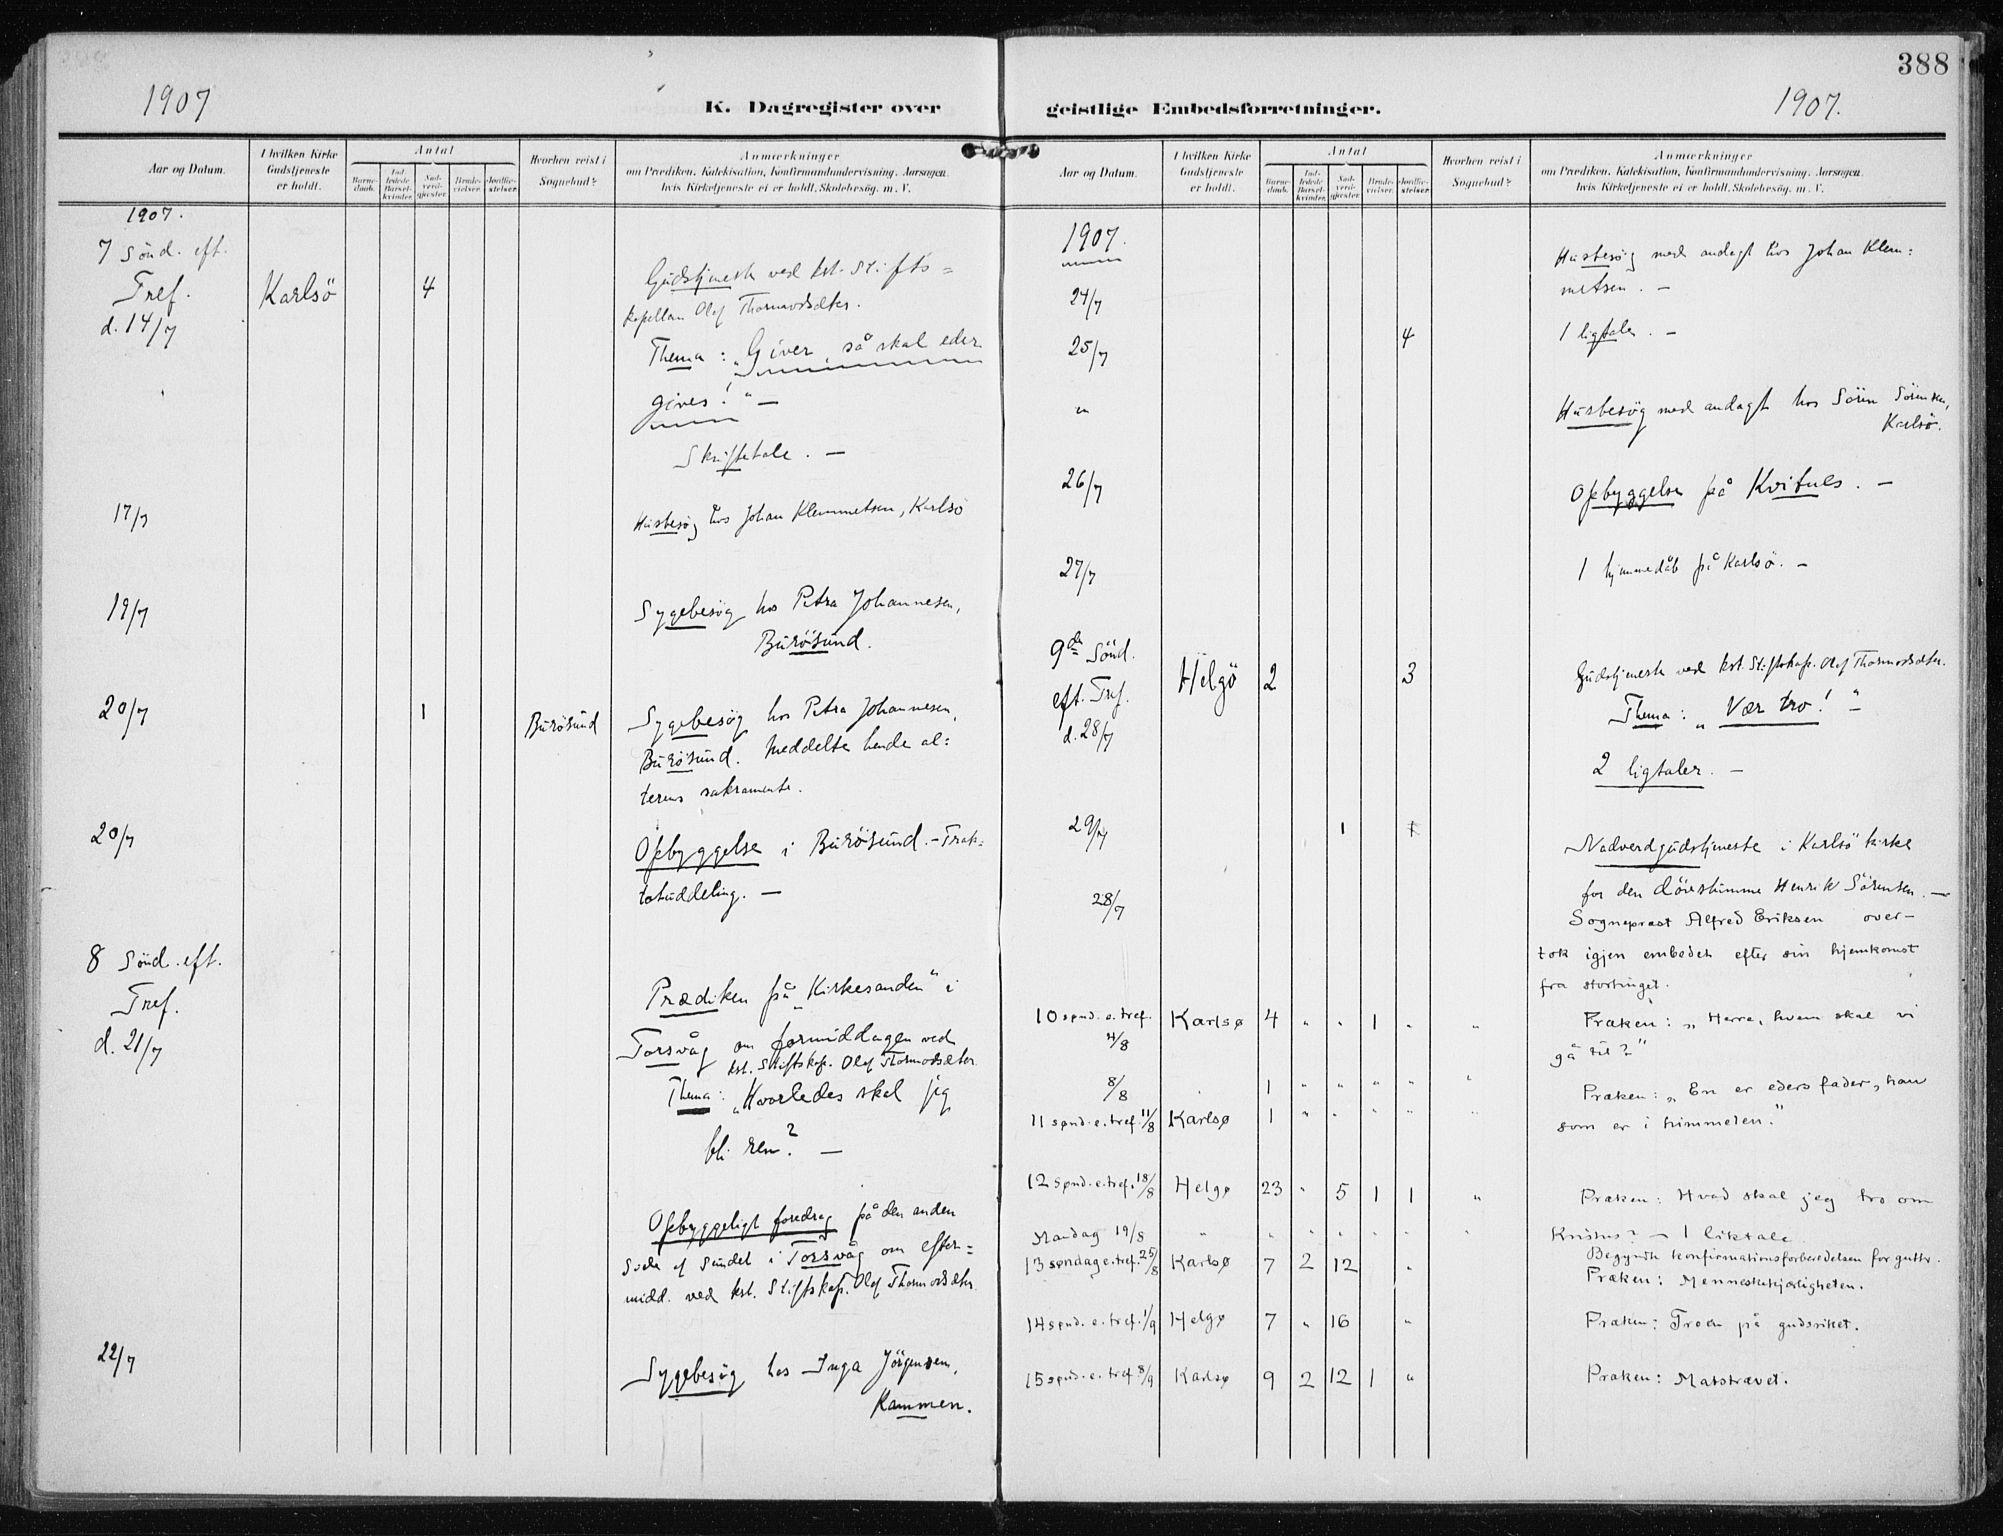 388
1907
K. Dagregister over
geistlige Embedsforretninger.
1907.
Aar og Datum.
I hvilken Kirke Gudstjeneste er holdt.
Antal
Barnedaab.
Indledede Barselkvinder.
Nadverdgjester
Brudevielser.
Jordfæstelser.
Hvorhen reist i Sognebud?
Anmærkninger
om Prædiken, Katekisation, Konfirmandundervisning. Aarsagen,
hvis Kirketjeneste ei er holdt. Skolebesøg. m. V.
1907.
7 Sönd. eft.
Tref.
d. 14/7
Karlsö
4
Gudstjeneste ved kst. Stifts=
kapellan Olaf Thormodsæter.
Thema: „Giver, så skal eder
gives!" —
Skriftetale. —
17/7
Husbesøg hos Johan Klemmetsen, Karlsö
19/7
Sygebesøg hos Petra Johannesen,
Burösund.
20/7
1
Burösund
Sygebesøg hos Petra Johannesen,
Burösund. Meddelte hende al=
terens sakramente.
20/7
Opbyggelse i Burösund. – Trak=
tatuddeling. —
8 Sönd. eft.
Tref.
d. 21/7
Prædiken på „Kirkesanden" i
Torsvåg om formiddagen ved
kst. Stiftskap. Olaf Thormodsæter
Thema: „Hvorledes skal jeg
bli ren? —
Opbyggeligt foredrag på den anden
side af Sundet i Torsvåg om efter=
midd. ved kst. Stiftskap. Olaf Thormodsæter
22/7
Sygebesøg hos Inga Jörgensen,
Kammen.
Aar og Datum.
I hvilken Kirke Gudstjeneste er holdt.
Antal
Barnedaab.
Indledede Barselkvinder.
Nadverdgjester
Brudevielser.
Jordfæstelser.
Hvorhen reist i Sognebud?
Anmærkninger
om Prædiken, Katekisation, Konfirmandundervisning. Aarsagen,
hvis Kirketjeneste ei er holdt. Skolebesøg. m. V.
1907.
24/7
Husbesøg med andagt hos Johan Klem:
metsen. —
25/7
4
1 ligtale. —
"
Husbesøg med andagt hos Sören Sörensen,
Karlsö.
26/7
Opbyggelse på Kvitnes. —
27/7
1 hjemmedåb på Karlsö. —
9de Sönd.
eft. Tref.
d. 28/7
Helgö
2
3
Gudstjeneste ved kst. Stiftskap. Olaf Thormodsæter.
Thema: „Vær tro!" —
2 ligtaler. —
29/7
1
1
Nadverdgudstjeneste i Karlsö kirke
for den døvstumme Henrik Sörensen. —
28/7
Sogneprest Alfred Eriksen over-
tok igjen embedet efter sin hjemkomst
fra stortinget.
10 sønd. e. tref. 4/8
Karlsø
4 " " 1 " "
Præken: „Herre, hvem skal vi
gå til?"
8/8
1 " " " " "
11 sønd. e. tref. 11/8
Karlsø
1 " " " " "
Præken: „En er eders fader, han
som er i himmelen."
12 sønd. e. tref. 18/8
Helgø
23 " 5 1 1 "
Præken: Hvad skal jeg tro om
Kristus? – 1 liktale
Mandag 19/8
" " " " " " "
Begyndte konfirmationsforberedelsen for gutter.
13 søndag e. tref. 25/8
Karlsø
7 2 12 "
Præken: Menneskekjærligheten.
14 sønd. e. tref. 1/9
Helgø
7 " 16 "
Præken: Troen på gudsriket.
15 sønd. e. tref. 8/9
Karlsø
9 2 12 1 "
Præken: Matstrævet.